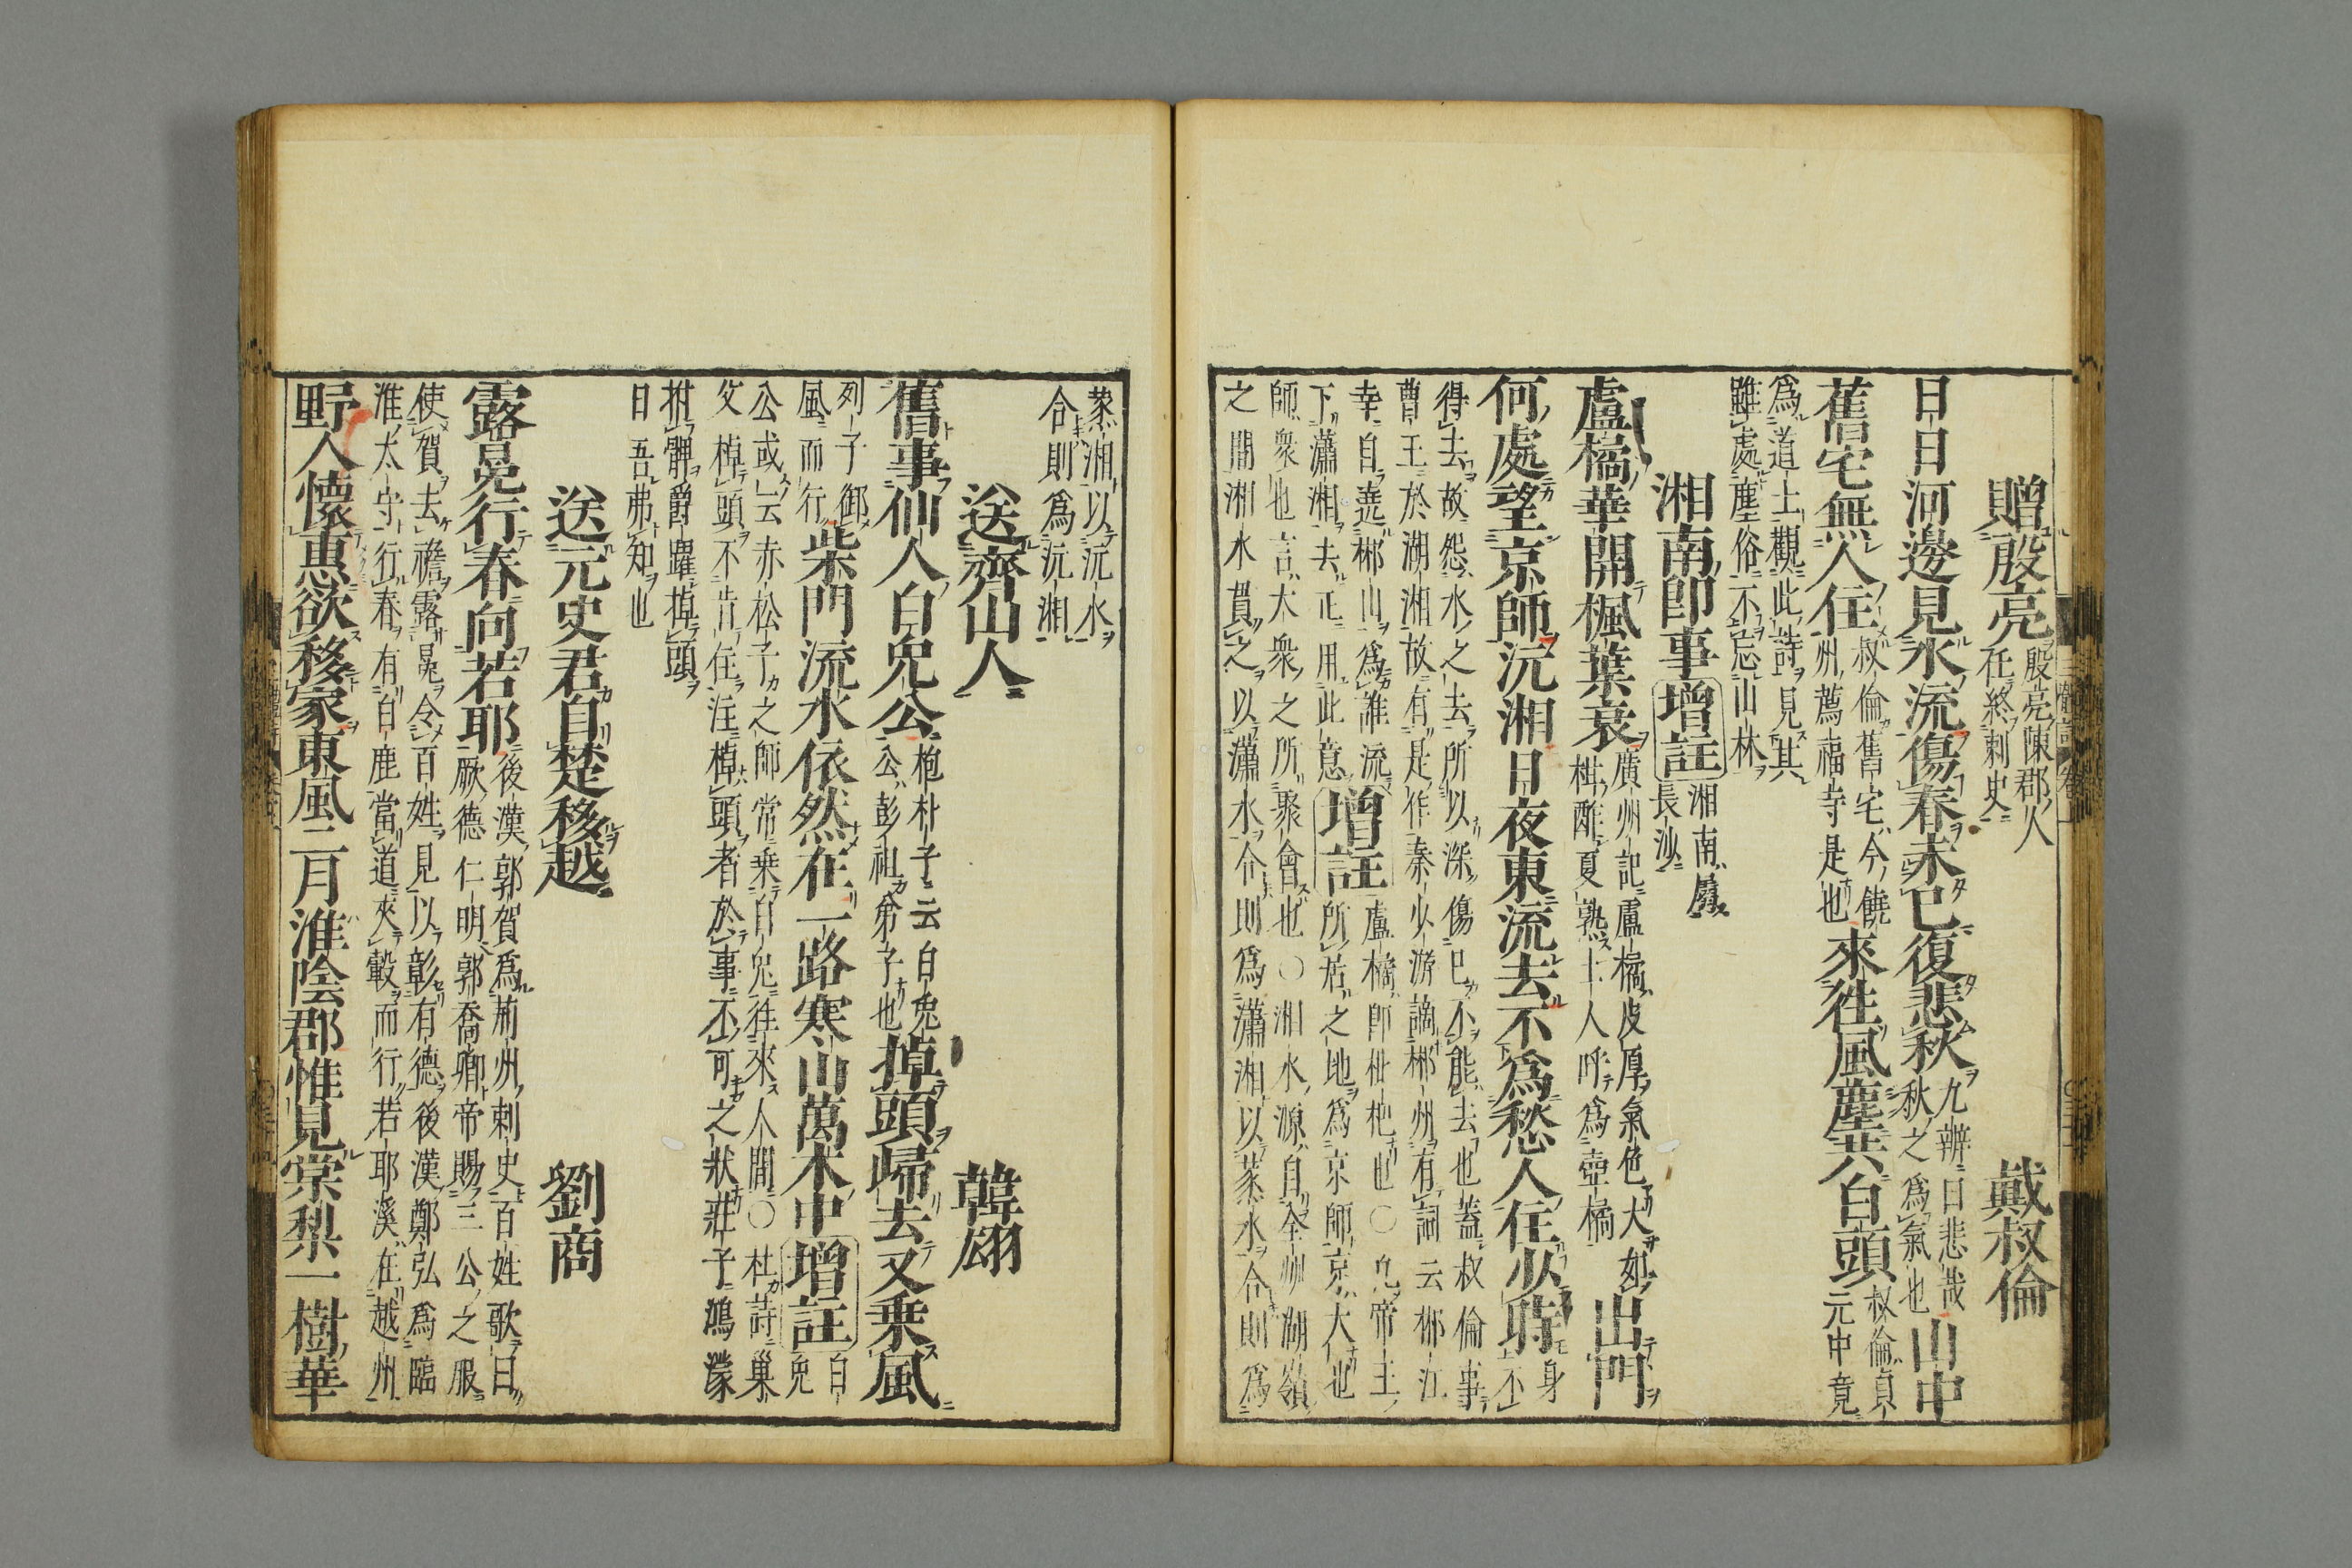 贈殷亮 殷亮陳郡人 任終刺史 戴叔倫
日日河邊見水流傷春未已復悲秋 九辨曰悲哉 秋之爲氣也 山中
舊宅無人住 叔倫舊宅今饒 州薦福寺是也 來往風塵共白頭 叔倫貞 元中竟
爲道士觀此詩見其
雖處塵俗不忘山林
湘南即事 增註 湘南屬 長沙
盧橘華開楓葉衰 廣州記盧橘皮厚氣色大如 柑酢夏熟土人呼爲壺橘 出門
何處望京師沅湘日夜東流去不爲愁人住少時 身不
得去故怨水之去所以深傷己不能去也蓋叔倫事
曹王於湖湘故有是作秦少游謫郴州有詞云郴江
幸自遶郴山爲誰流
下瀟湘去正用此意 增註 盧橘即枇杷也○凡帝王
所居之地爲京師京大也
師衆也言大衆之所聚會也○湘水源自全州湖嶺
之間湘水貫之以瀟水合則爲瀟湘以蒸水合則爲
蒸湘以沅水
合則爲沅湘
送齊山人 韓翃
舊事仙人白兔公 抱朴子云白兔 公彭祖弟子也 掉頭歸去又乗風
列子御 風而行 柴門流水依然在一路寒山萬木中 增註 白 兔
公或云赤松子之師常乗白兔往來人間○杜詩巢
父掉頭不肯住注掉頭者於事不可之狀莊子鴻濛
拊髀爵躍掉頭
曰吾弗知也
送元史君自楚移越 劉商
露冕行春向若耶 後漢郭賀爲荊州刺史百姓歌曰 厥德仁明郭喬卿帝賜三公之服
使賀去襜露冕令百姓見以彰有德後漢鄭弘爲臨
淮太守行春有白鹿當道夾轂而行若耶溪在越州
野人懷惠欲移家東風二月淮陰郡惟見棠梨一樹華